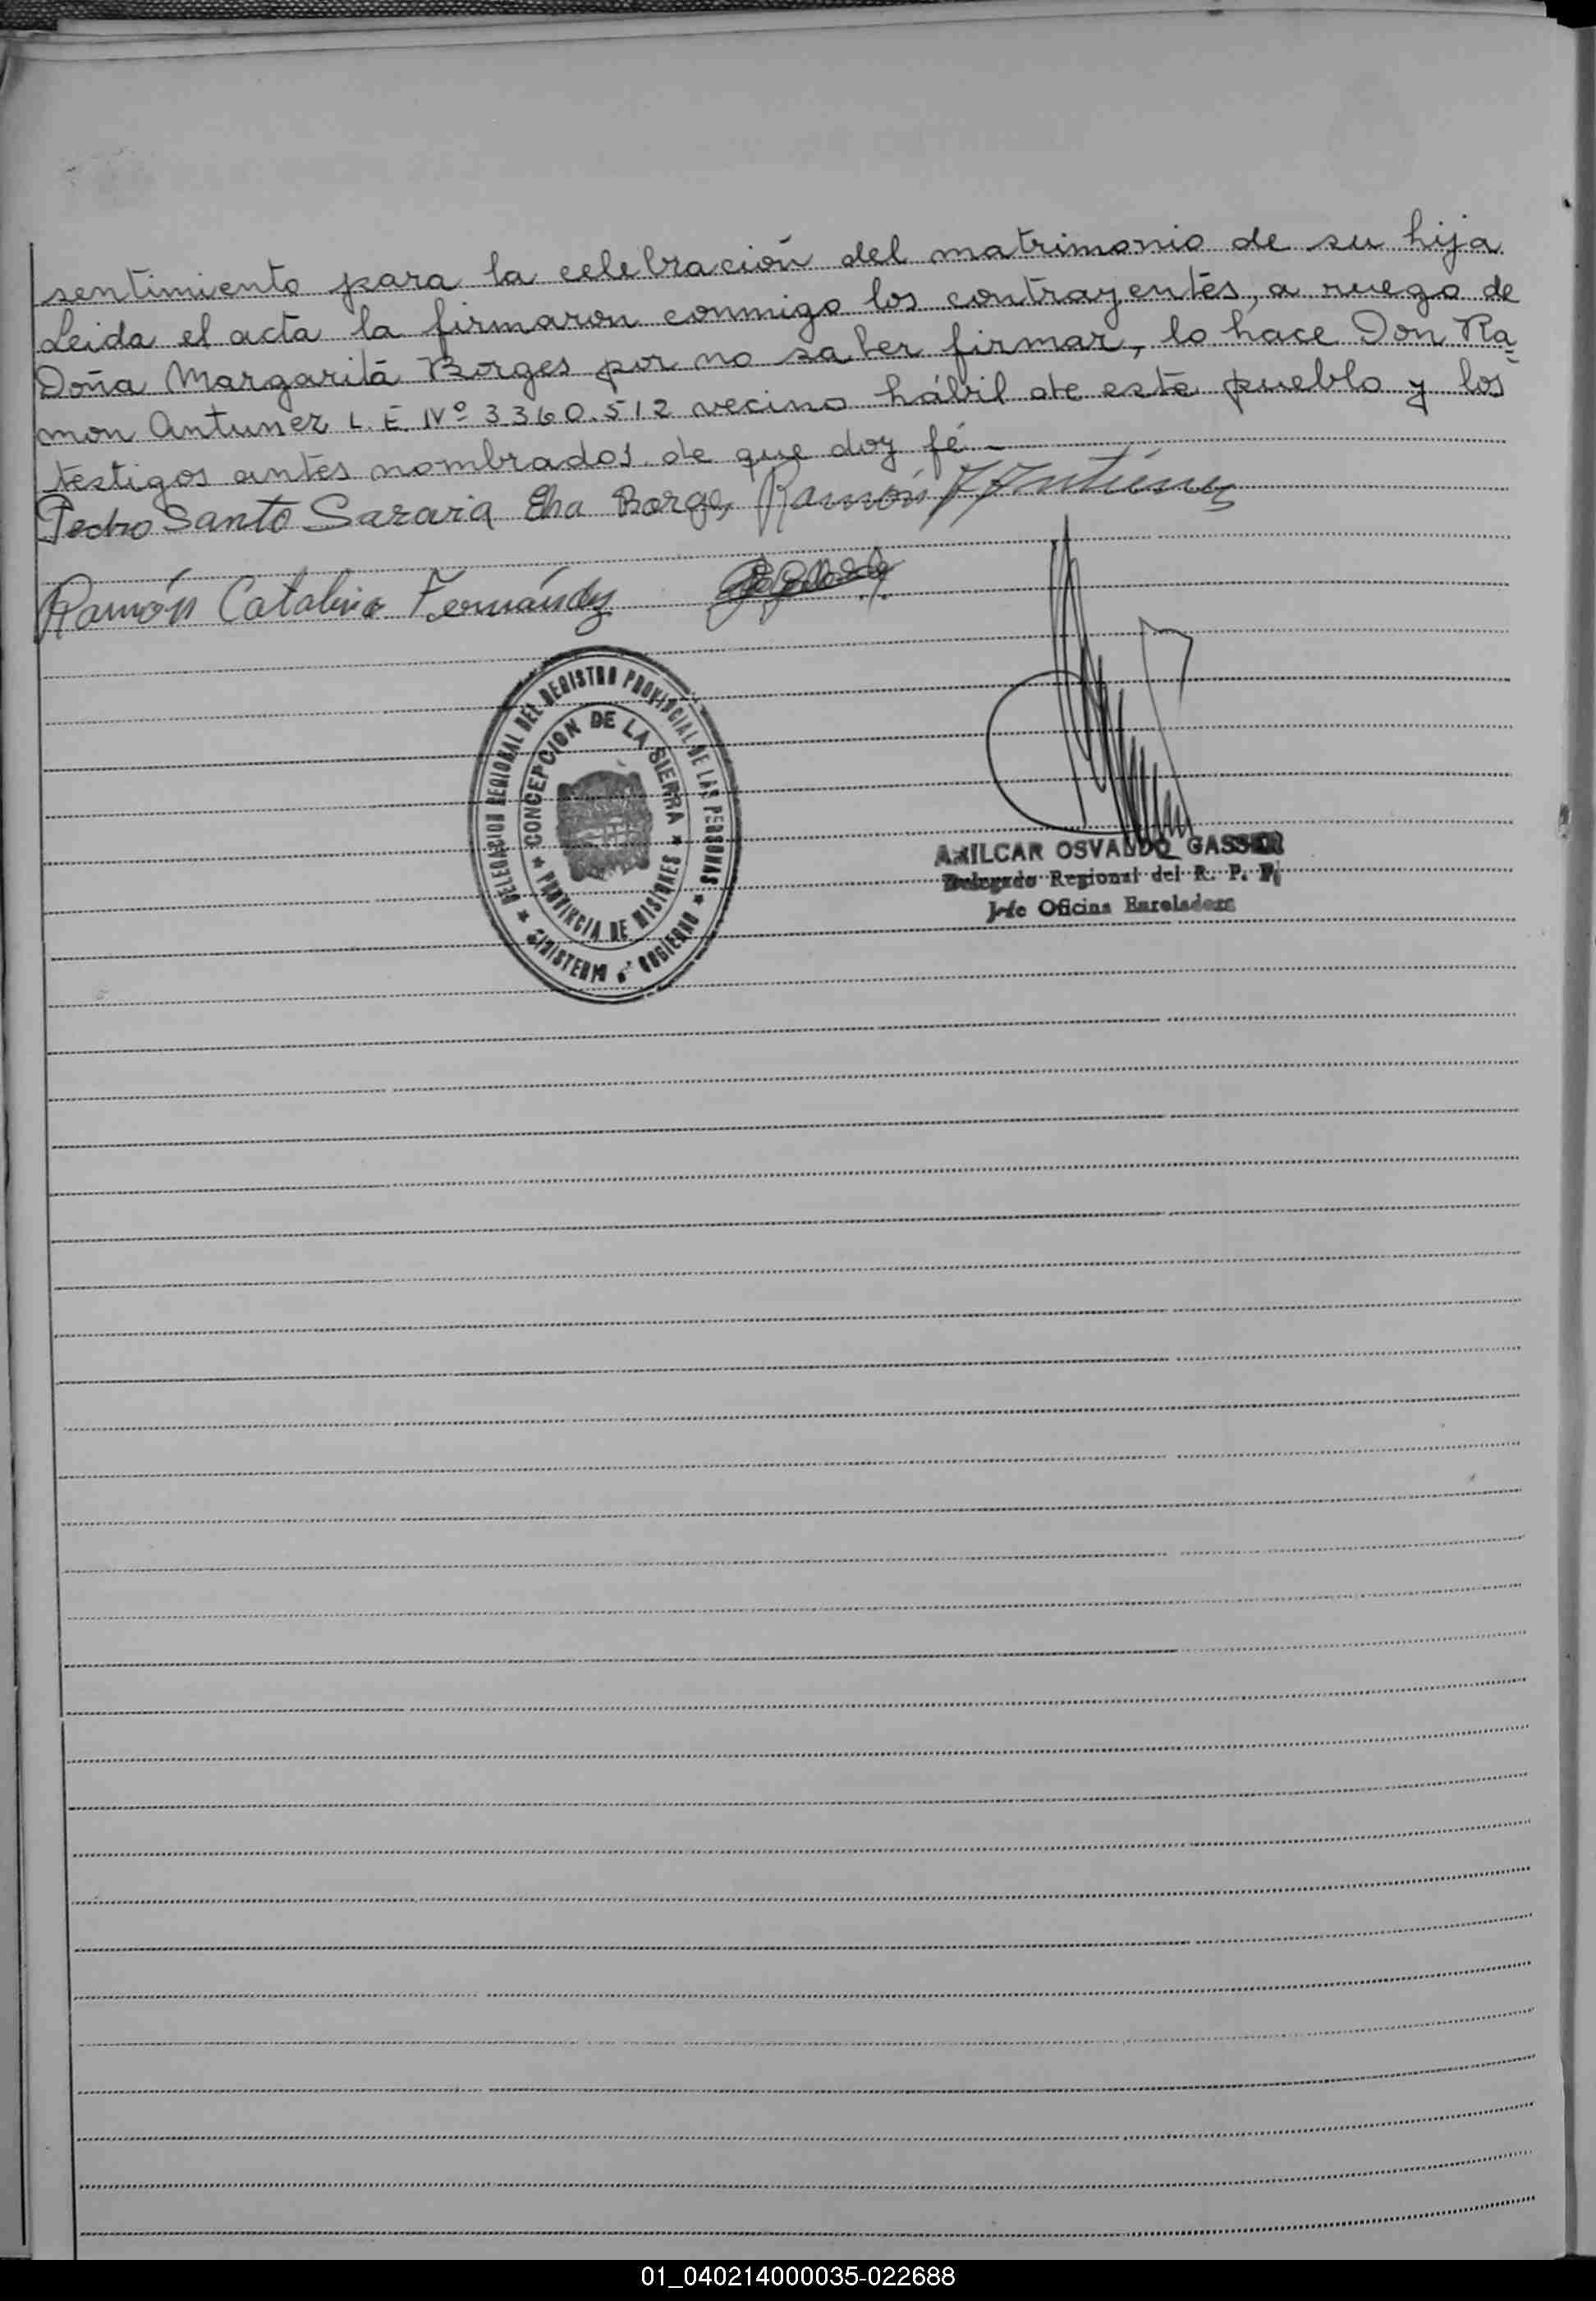 sentimiento para la celebración del matrimonio de su hija
Leida el acta la firmaron conmigo los contrayentes, a ruego de
Doña Margarita Borges por no saber firmar, lo hace Don Ra-
mon Antunez L. E. Nº 3360.512 vecino hábil de este pueblo y los
testigos antes nombrados de que doy fé -
Pedro Santo Sararia Elva Borges Ramón
Ramón Catalino Fernández
DELEGACION REGIONAL DEL REGISTRO PROVINCIAL DE LAS PERSONAS
CONCEPCION DE LA SIERRA
PROVINCIA DE MISIONES
MINISTERIO GOBIERNO
AMILCAR OSVALDO GASSER
Delegado Regional del R. P. P.
Jefe Oficina Enroladora
01_040214000035-022688